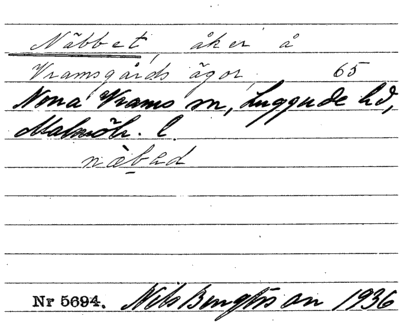 Näbbet, åker å
Vramsgårds ägor, 65
Norra Vrams sn, Luggude hd,
Malmöh. l.
näbad
Nr 5694. Nils Bengtsson 1936